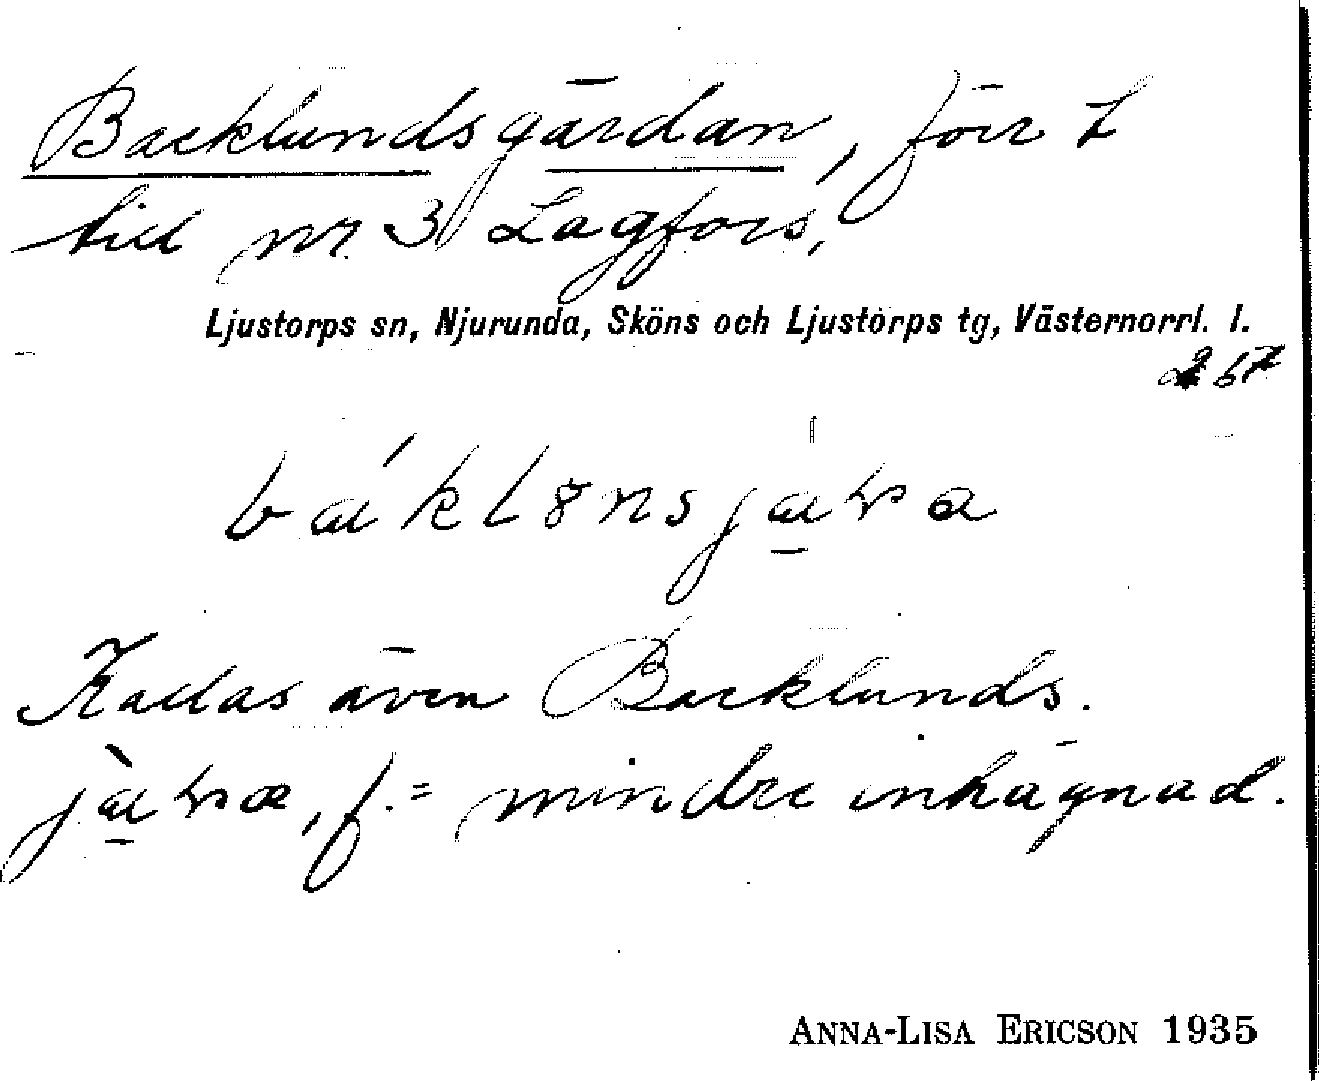 Backlundsgärdan, förr L
till nr 3 Lagfors,
Ljustorps sn, Njurunda, Sköns och Ljustorps tg, Västernorrl. l.
267
Kallas även Backlunds.
f. = mindre inhägnad.
ANNA-LISA ERICSON 1935